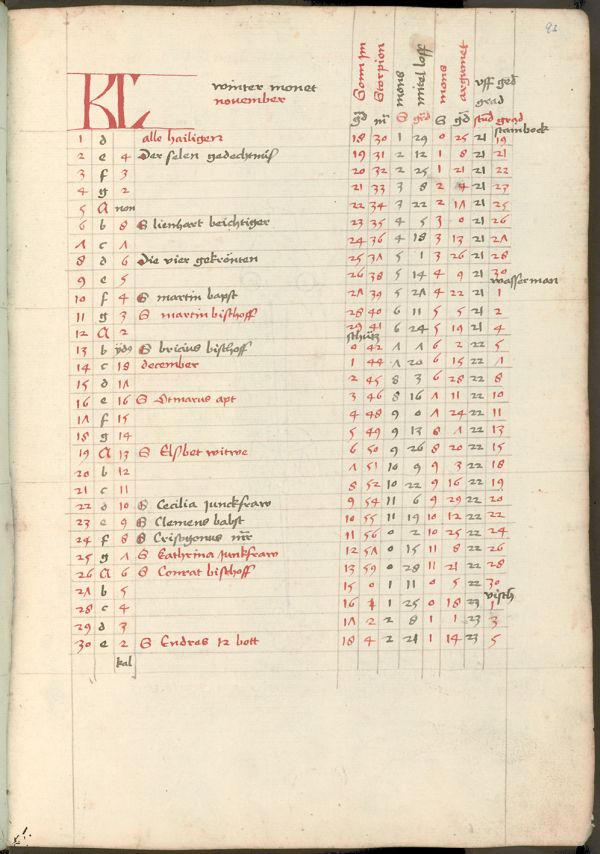 93
KL
winter monet
november
Sonn im Scorpion
mons
mons
argumet
vff ged grad
gd m S grd S gd stud grad
stainbock
1 d alle hailigen 18 30 1 29 0 25 21 19
2 e 4 Der selen gedechtnüs 19 31 2 12 1 8 21 21
3 f 3 20 32 2 25 1 21 21 22
4 g 2 21 33 3 8 2 4 21 23
5 A non 22 34 3 22 2 17 21 25
6 b 8 S lienhart beichtiger 23 35 4 5 3 0 21 26
7 c 7 24 36 4 18 3 13 21 27
8 d 6 Die vier gekrönten 25 37 5 1 3 26 21 28
9 e 5 26 38 5 14 4 9 21 30
wasserman
10 f 4 S martin bapst 27 39 5 27 4 22 21 1
11 g 3 S martin bischoff 28 40 6 11 5 5 21 2
12 A 2 29 41 6 24 5 19 21 4
schütz
13 b ydus S bricius bischoff 0 42 7 7 6 2 22 5
14 c 18 december 1 44 7 20 6 15 22 7
15 d 17 2 45 8 3 6 28 22 8
16 e 16 S Otmarus apt 3 46 8 16 7 11 22 10
17 f 15 4 48 9 0 7 24 22 11
18 g 14 5 49 9 13 8 7 22 13
19 A 13 S Elsbet witwe 6 50 9 26 8 20 22 15
20 b 12 7 51 10 9 9 3 22 18
21 c 11 8 52 10 22 9 16 22 19
22 d 10 S Cecilia junckfraw 9 54 11 6 9 29 22 20
23 e 9 S Clemens babst 10 55 11 19 10 12 22 22
24 f 8 S Crisogonus mr 11 56 0 2 10 25 22 24
25 g 7 S Kathrina junkfraw 12 57 0 15 11 8 22 26
26 A 6 S Conrat bischoff 13 59 0 28 11 21 22 28
27 b 5 15 0 1 11 0 5 22 30
visch
28 c 4 16 1 1 25 0 18 23 1
29 d 3 17 2 2 8 1 1 23 3
30 e 2 S Endres 12 bott 18 4 2 21 1 14 23 5
kal